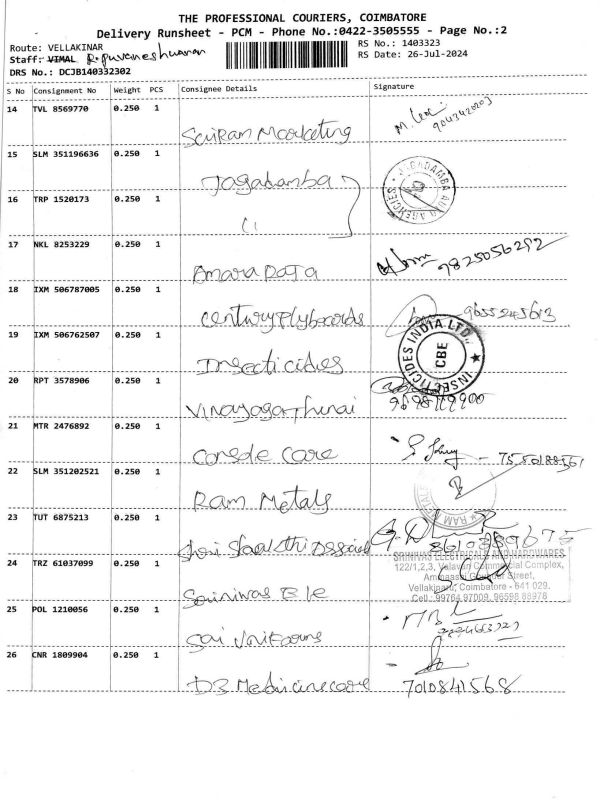 THE PROFESSIONAL COURIERS, COIMBATORE
Delivery Runsheet - PCM - Phone No.:0422-3505555 - Page No.:2
Route: VELLAKINAR
RS No.: 1403323
Staff: VIMAL R. Puvaneshwaran
RS Date: 26-Jul-2024
DRS No.: DCJB140332302
S No Consignment No Weight PCS Consignee Details Signature
14 TVL 8569770 0.250 1
Sairam Marketing
15 SLM 351196636 0.250 1
Jagadamba
JAGADAMBA AUTO AGENCIES
16 TRP 1520173 0.250 1
17 NKL 8253229 0.250 1
Amara Data 9825056292
18 IXM 506787005 0.250 1
Centuryplyboards 9655245613
19 IXM 506762507 0.250 1
Insecticides
INSECTICIDES INDIA LTD. CBE
20 RPT 3578906 0.250 1
21 MTR 2476892 0.250 1
22 SLM 351202521 0.250 1
Ram Metals
RAM METALS
23 TUT 6875213 0.250 1
SRINIVAS ELECTRICALS AND HARDWARES
24 TRZ 61037099 0.250 1
122/1,2,3, Commercial Complex,
Street,
Srinivas Ele
Vellakinar, Coimbatore - 641 029.
Cell: 99764 97009, 96598 88978
25 POL 1210056 0.250 1
Sai Uniforms
26 CNR 1809904 0.250 1
D3 Medicinecare 7010841568